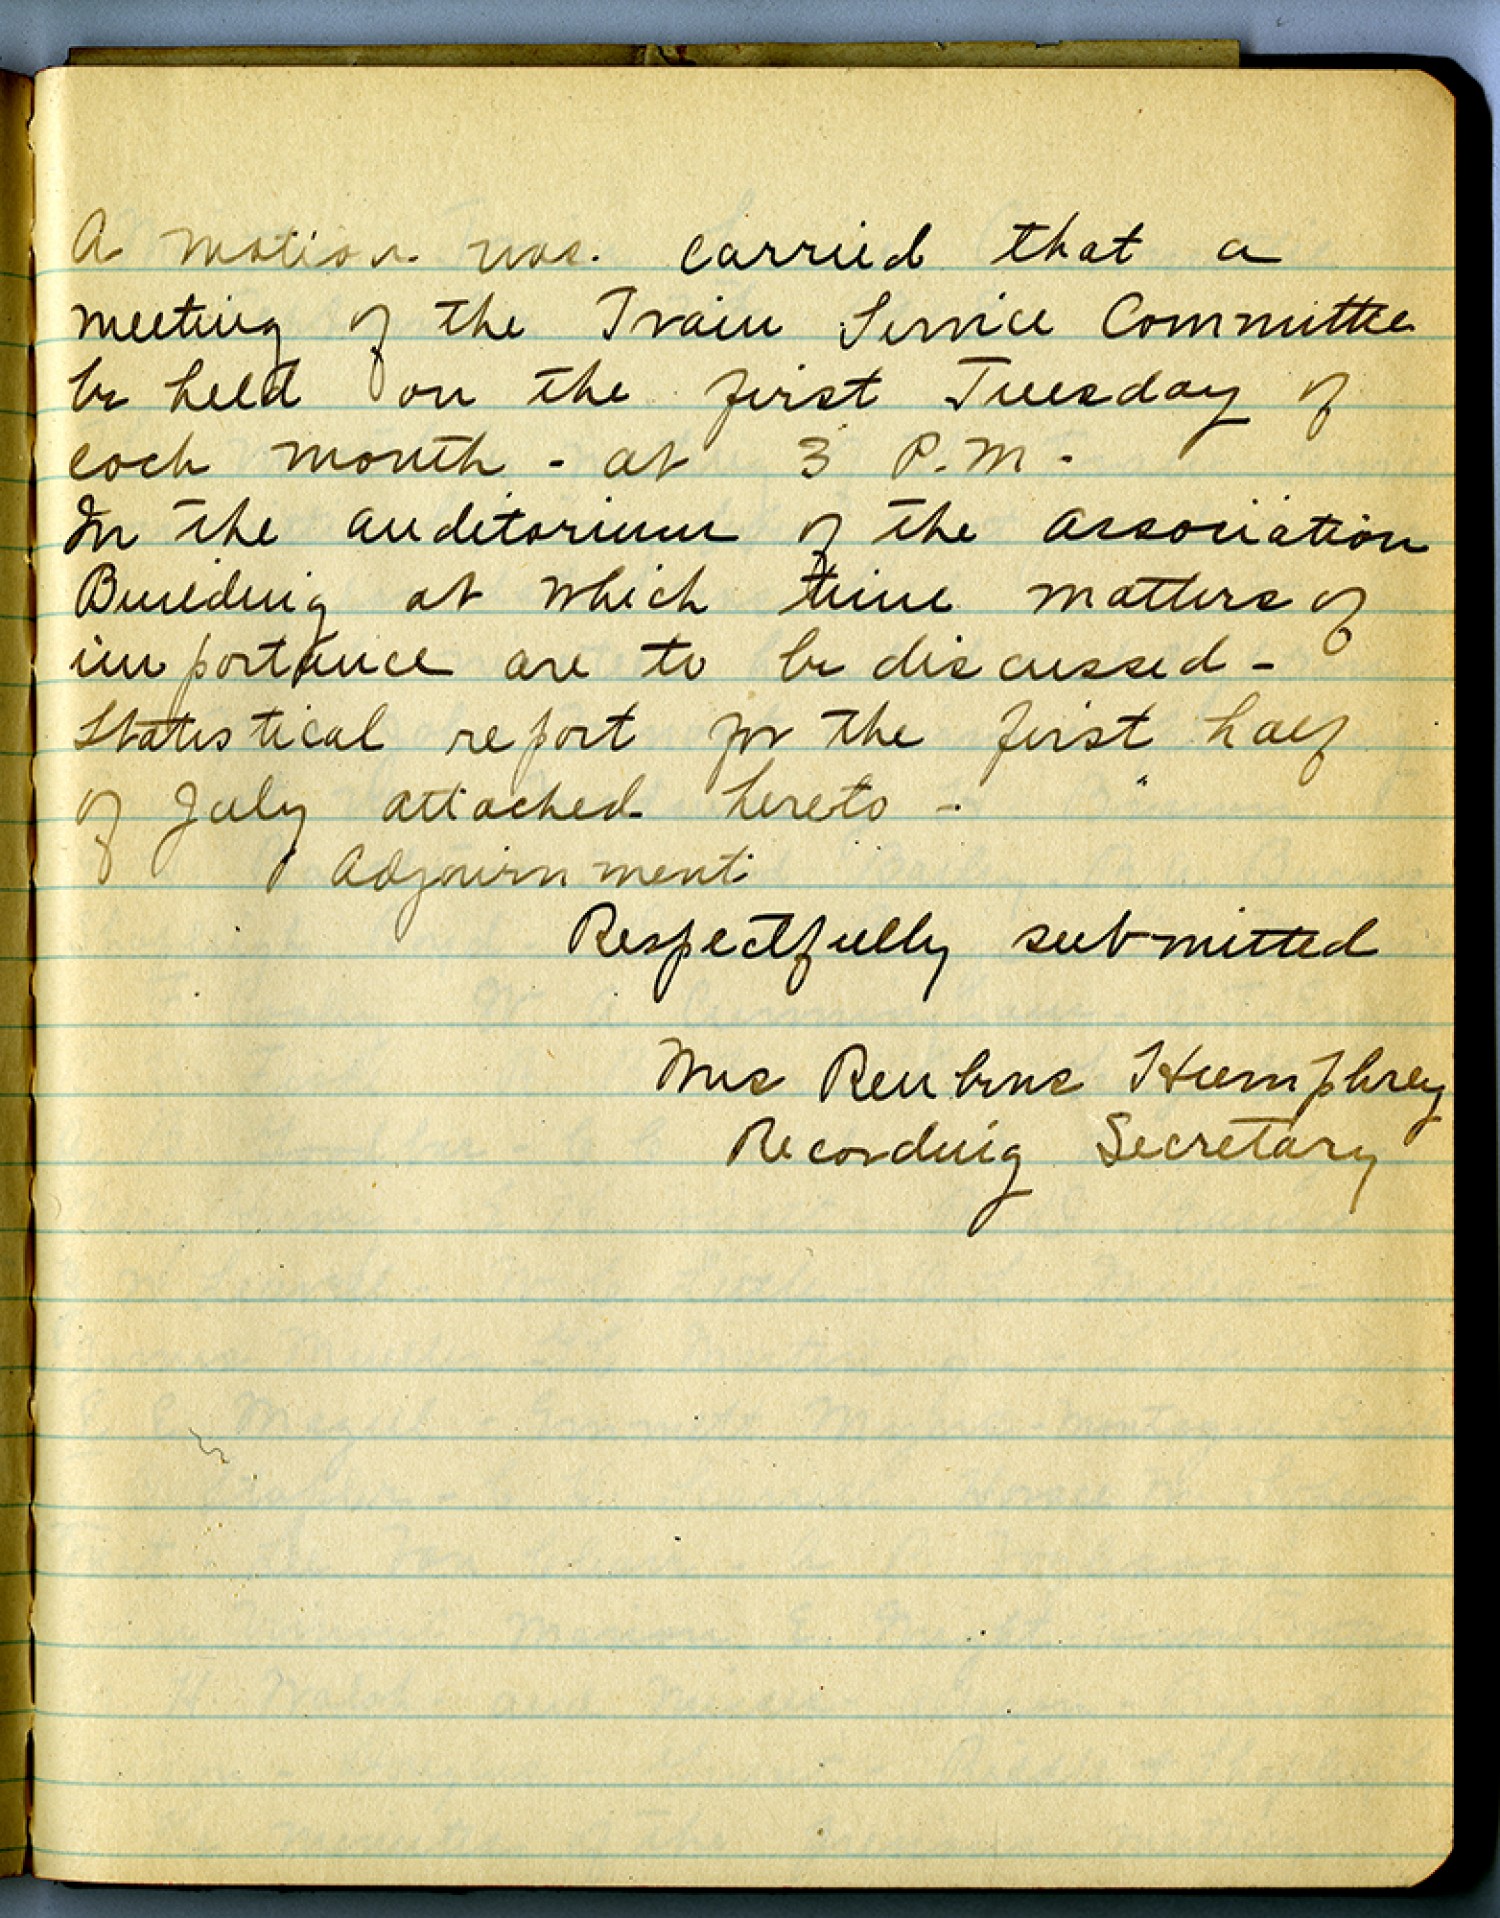 A motion was carried that a
meeting of the Train Service Committee
be held on the first Tuesday of
each month - at 3 P.M -
In the auditorium of the association
Building at which time matters of
importance are to be discussed -
Statistical report for the first half
of July attached hereto -
Adjournment
Respectfully submitted
Mrs Reubens Humphrey
Recording Secretary